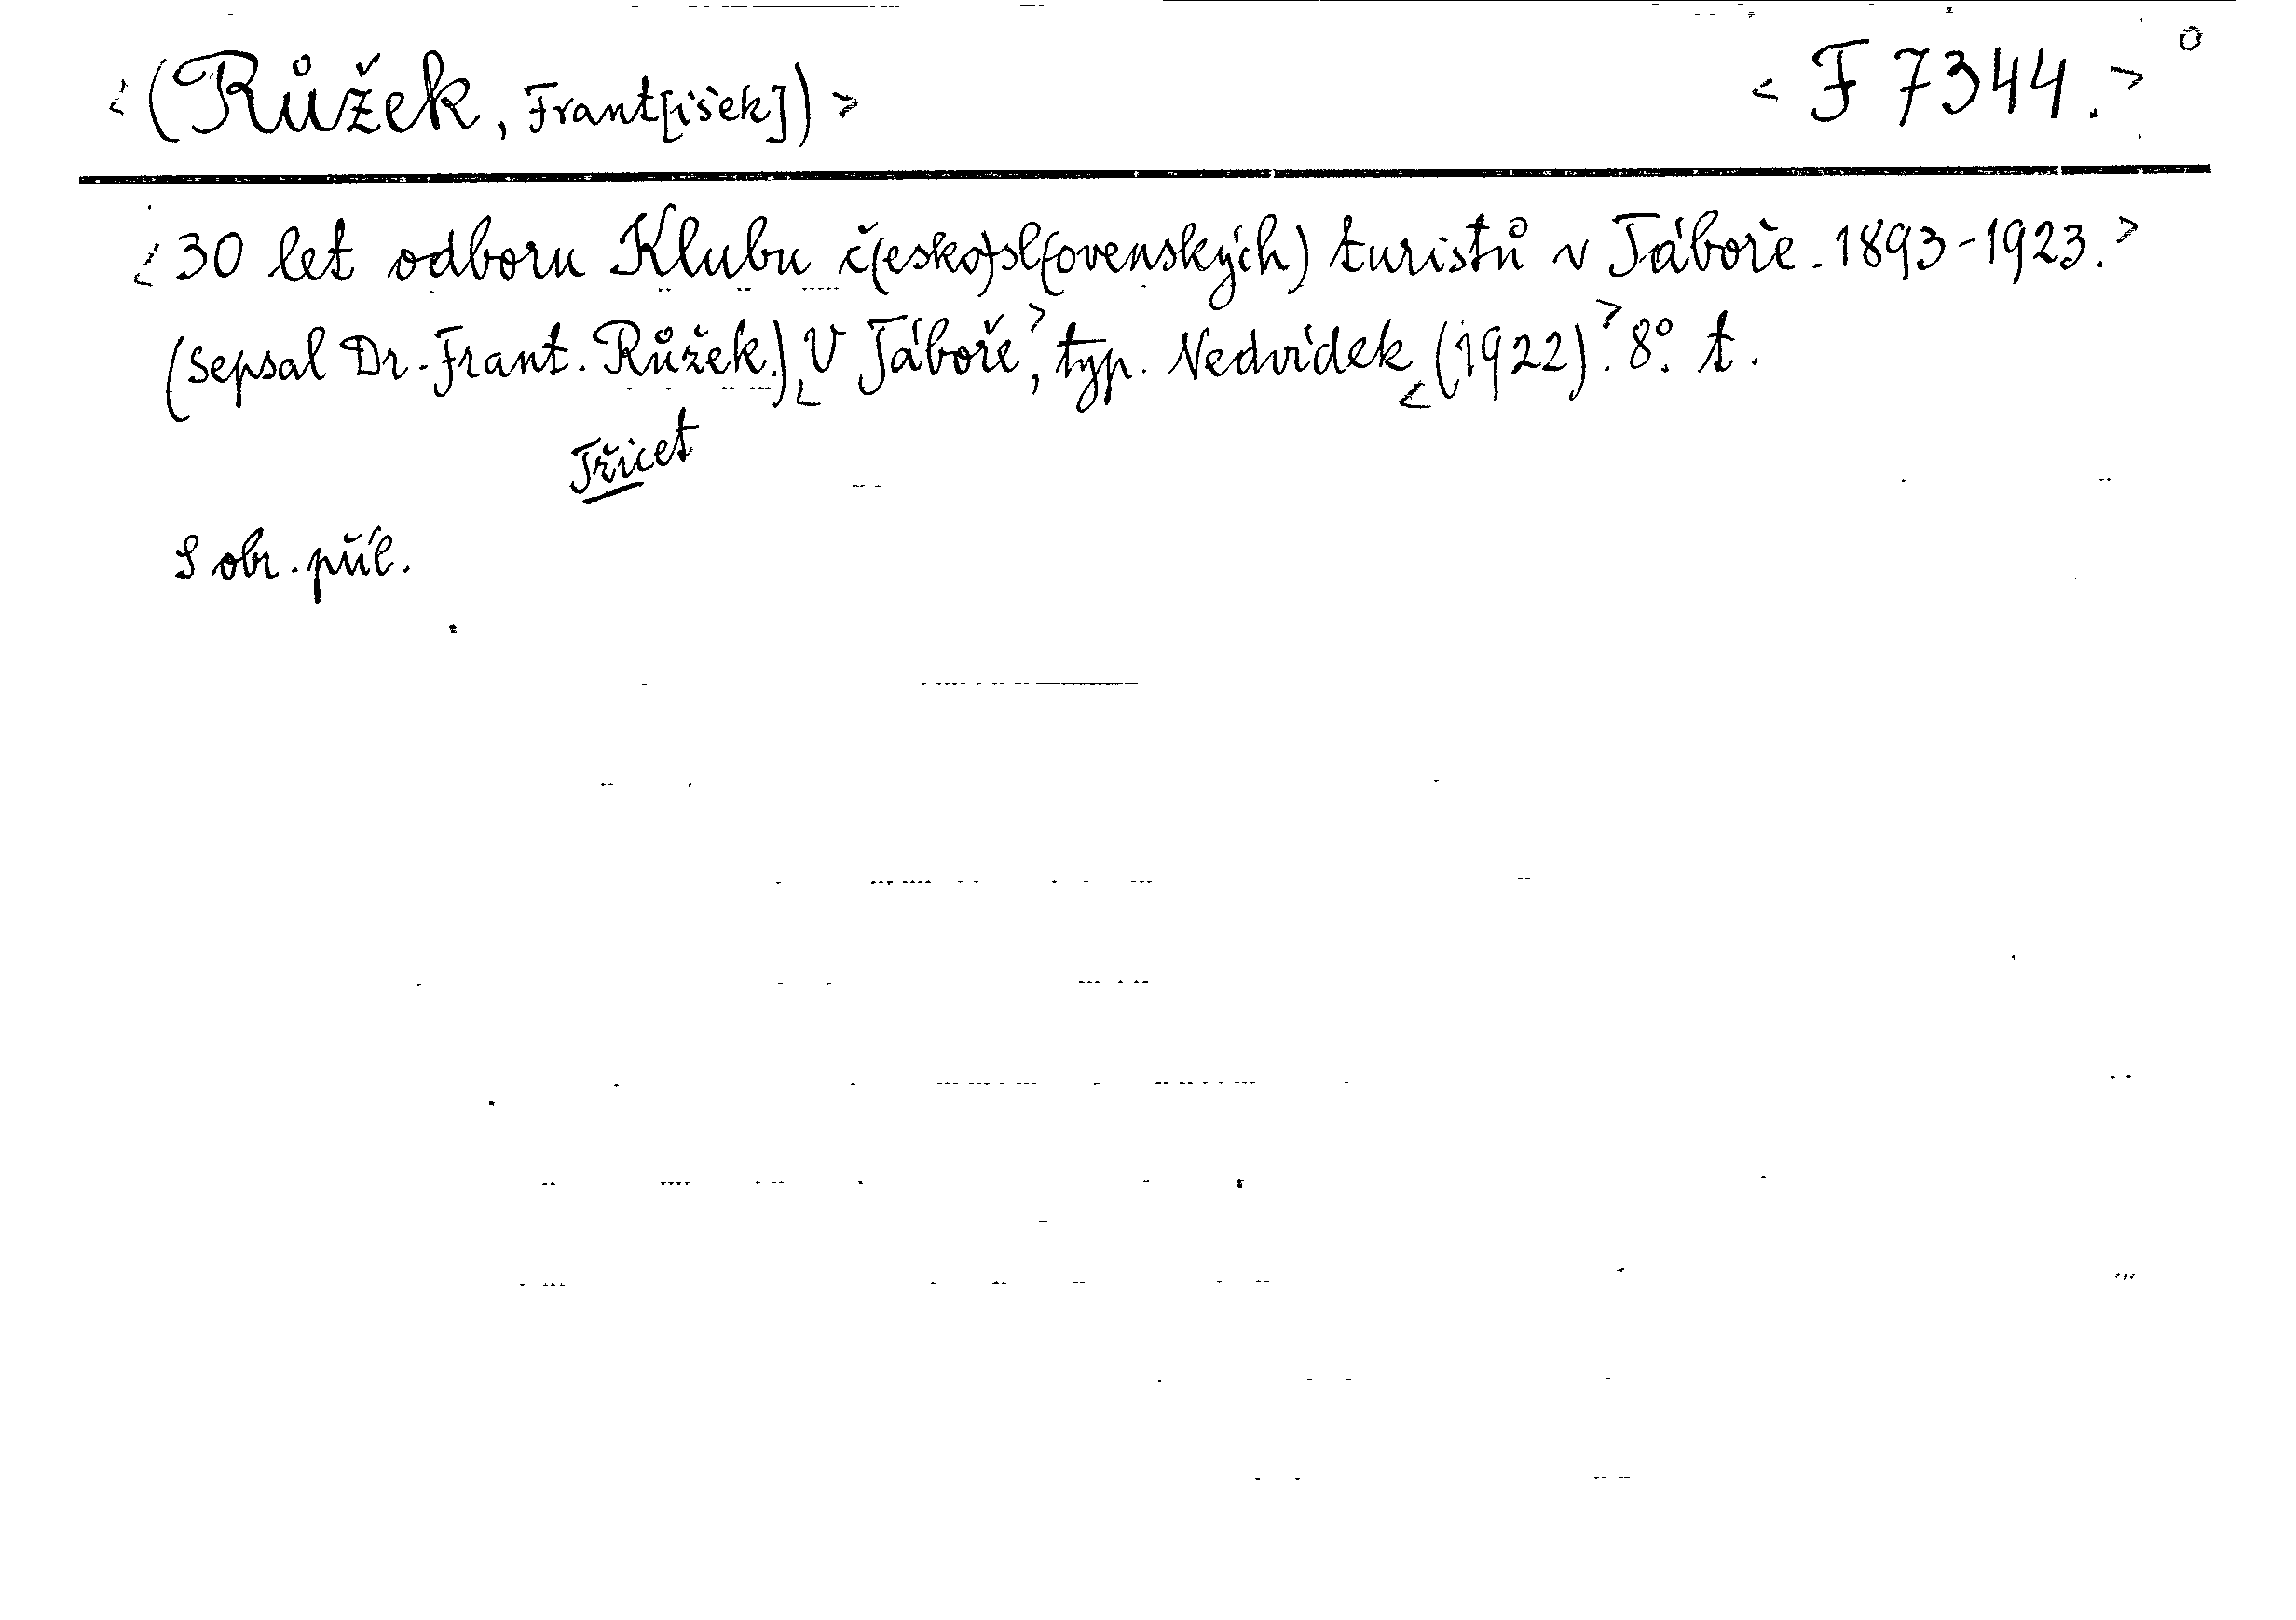 <(Růžek, Frant[išek])> <F 7344.>
<30 let odboru Klubu č(esko)sl(ovenských) turistů v Táboře. 1893-1923.>
(Sepsal Dr. Frant. Růžek.) <V Táboře>, typ. Nedvídek <(1922)>. 8°. t.
Třicet
S obr. příl.